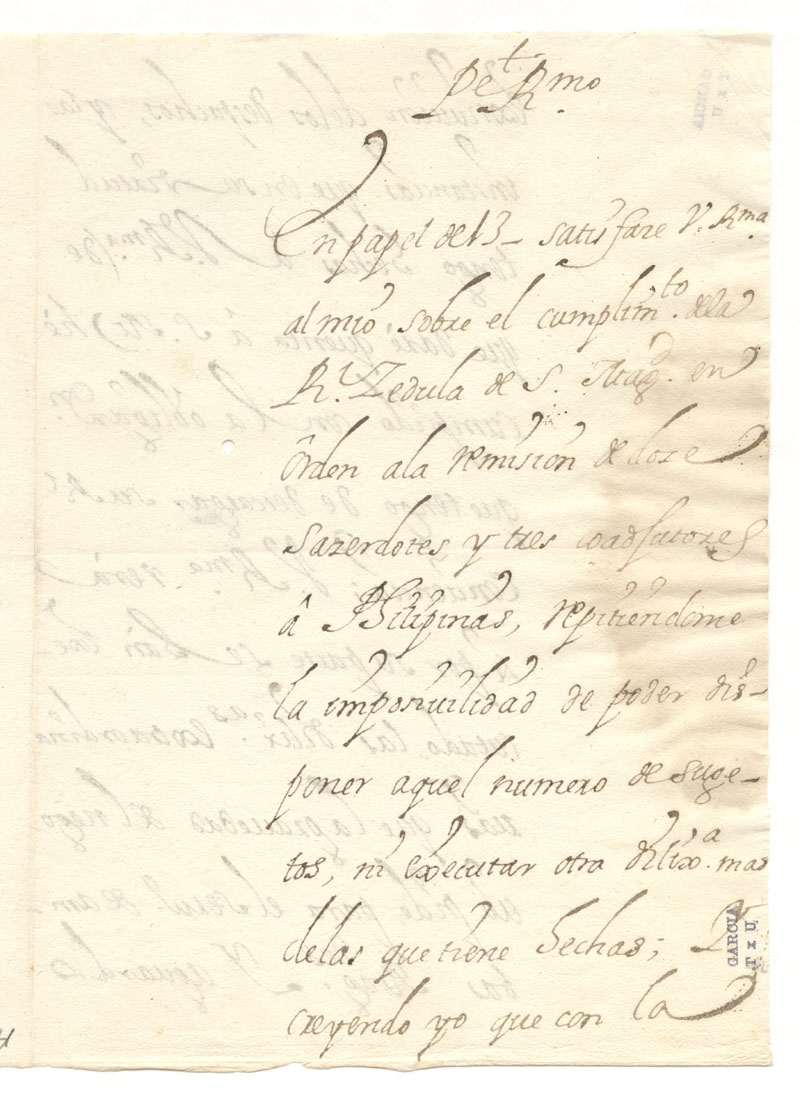 Pe.t Rmo
En papel de 13 - satisfare V. Rma
al mio sobre el cumplim.to dela
Rl. Zedula de S. Magd. en
orden ala remision de doze
sazerdotes, y tres coadjutores
â Philipinas, repitiendome
la imposivilidad de poder dis-
poner aquel numero de suge-
tos, ni executar otra dilix.a mas
delas que tiene hechas; Y
creyendo yo que con la
GARCIA
T x U